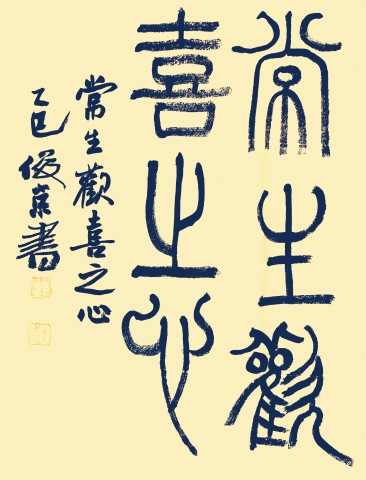 常生觀
喜之心
常生歡喜之心
乙巳俊京書